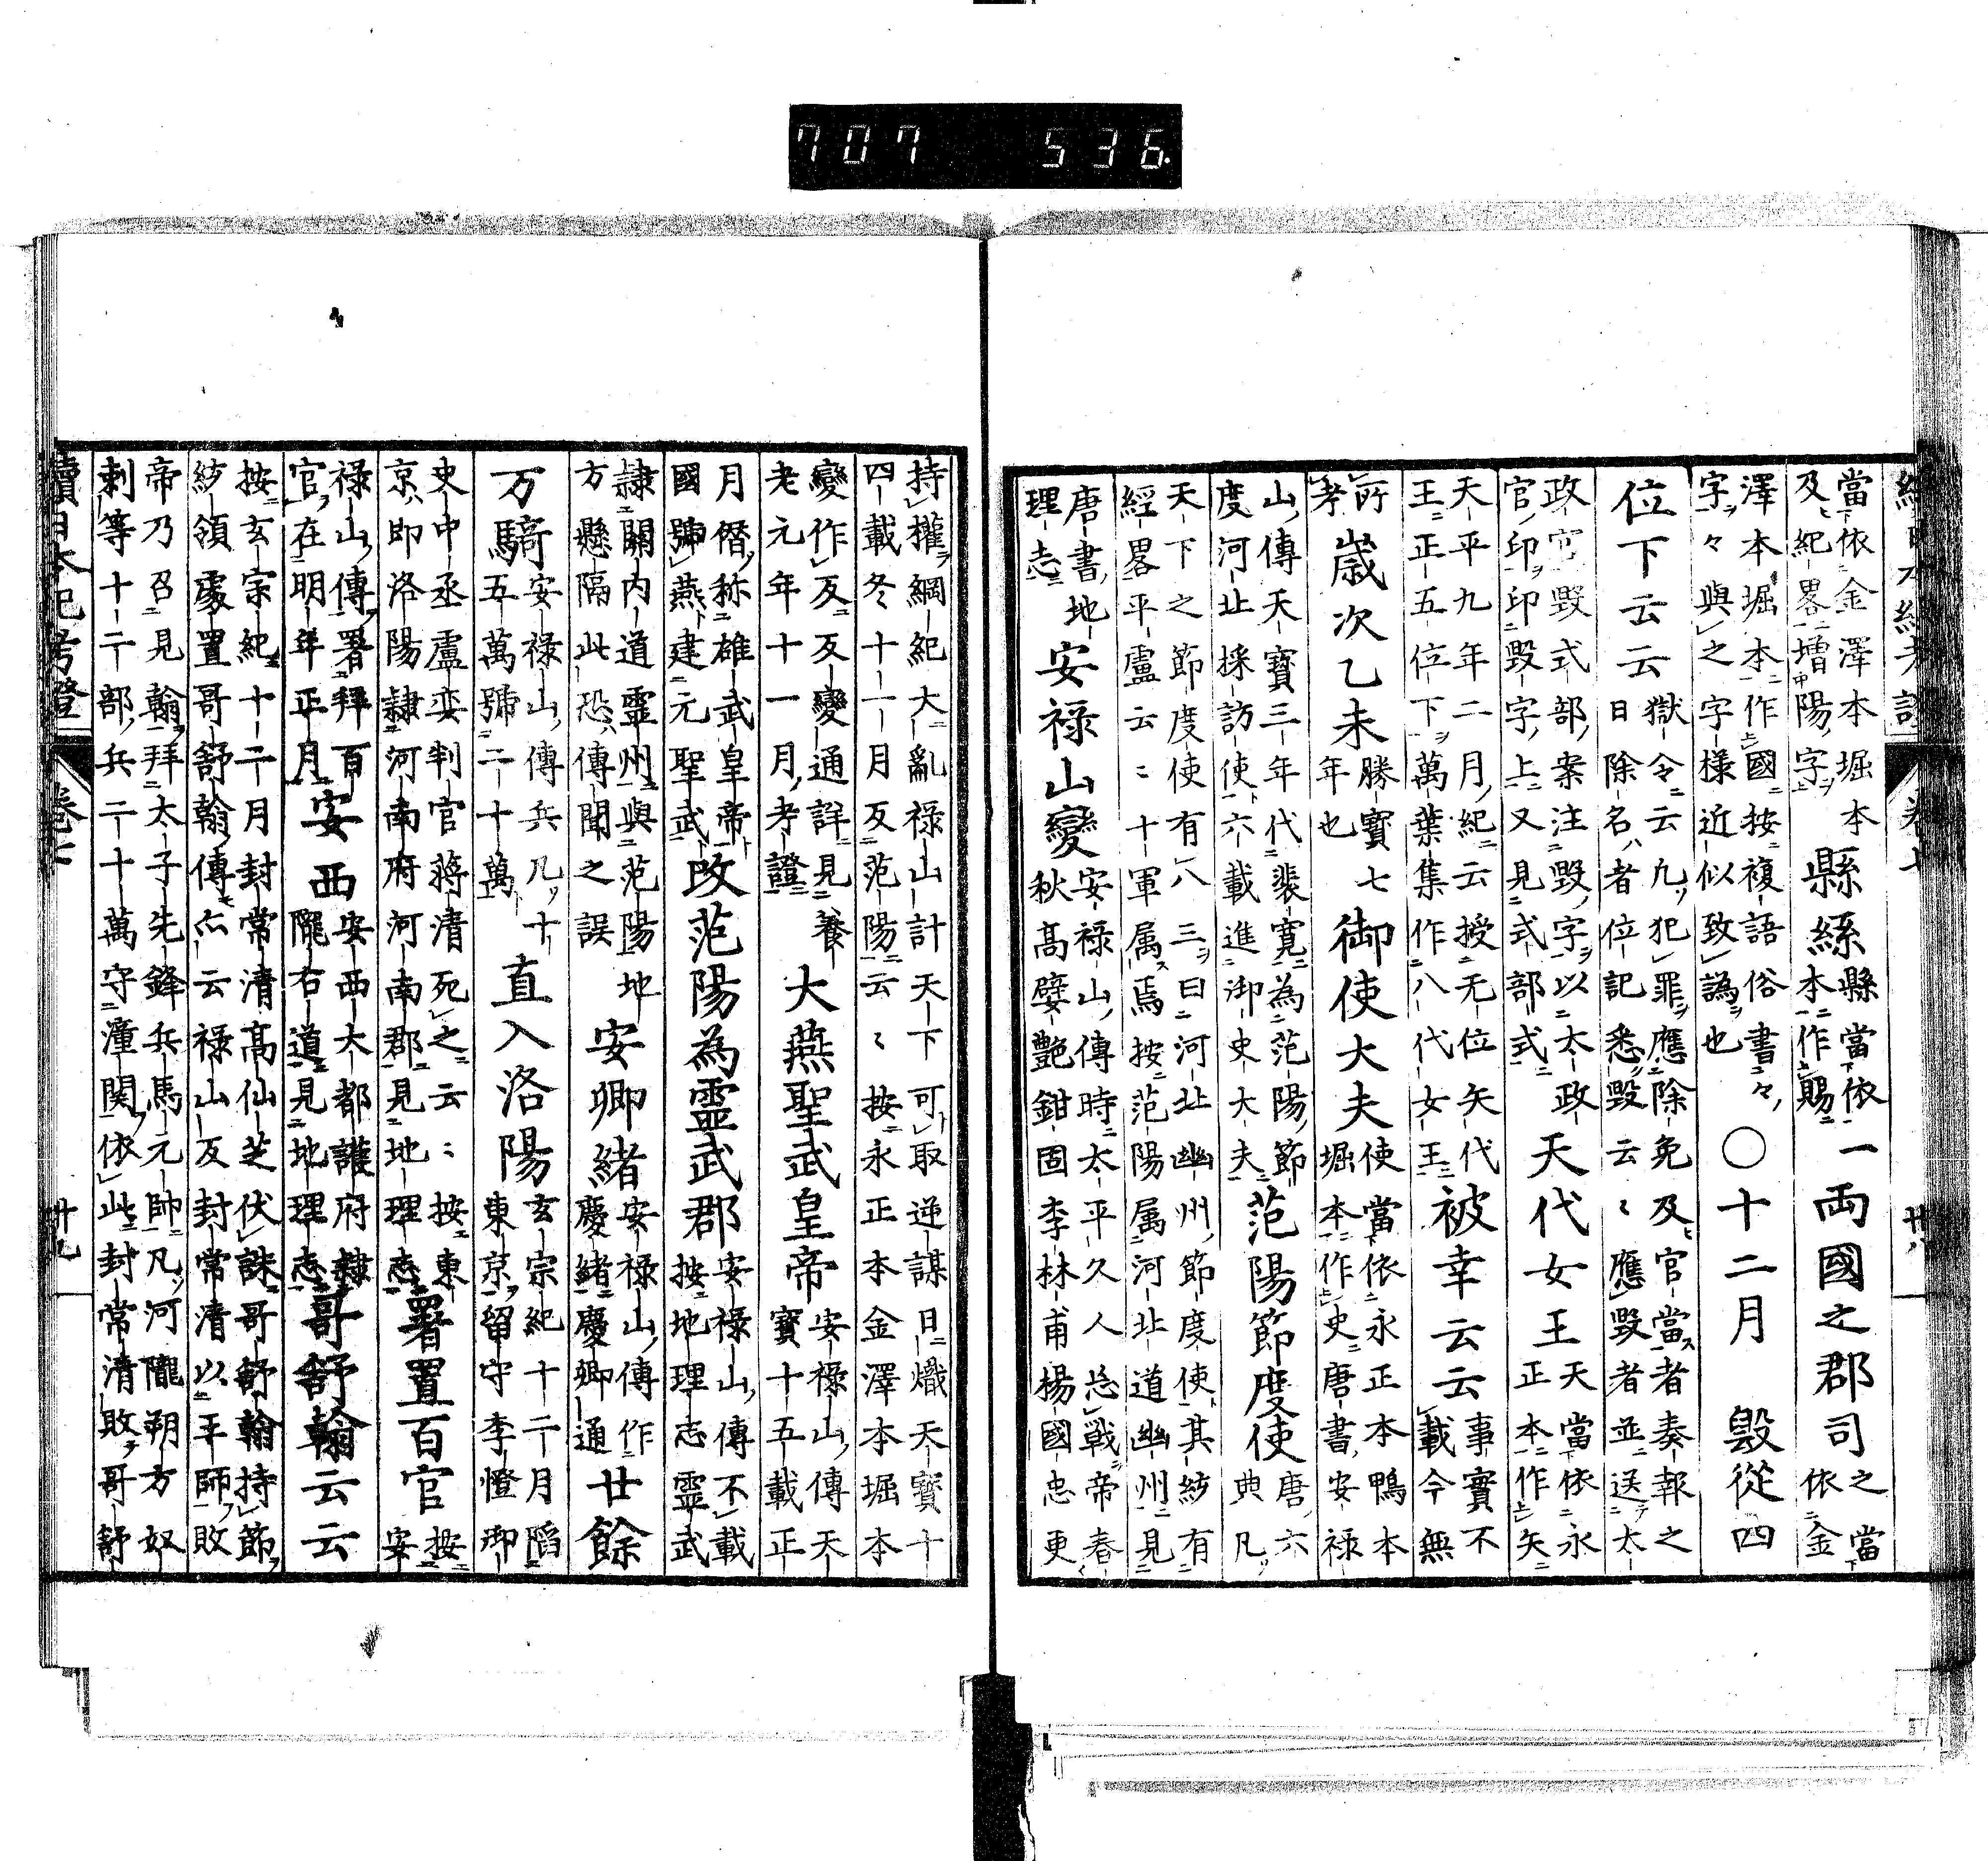 續日本紀考證 卷七 廿八
當依金澤本堀本
及紀畧増陽字
縣絲
縣當依一
本作賜
両國之郡司
之當
依金
澤本堀本作國按複語俗書々
字々與之字様近似致譌也
〇十二月 毀從四
位下云云
獄令云凡犯罪應除免及官當者奏報之
日除名者位記悉毀云〻應毀者並送太
政官毀式部案注毀字以太政
官印印毀字上又見式部式
天代女王
天當依永
正本作矢
天平九年二月紀云授无位矢代
王正五位下萬葉集作八代女王
被幸云云
事實不
載今無
所
考
歳次乙未
勝寶七
年也
御使大夫
使當依永正本鴨本
堀本作史唐書安禄
山傳天寶三年代裴寛為范陽節
度河北採訪使六載進御史大夫
范陽節度使
唐六
典凡
天下之節度使有八三曰河北幽州節度使其統有
經畧平盧云〻十軍属焉按范陽属河北道幽州見
唐書地
理志
安禄山變
安禄山傳時太平久人忘戰帝春
秋高嬖艶鉗固李林甫楊國忠更
持權綱紀大亂禄山計天下可取逆謀日熾天寶十
四載冬十一月反范陽云〻按永正本金澤本堀本
變作反反變通詳見養
老元年十一月考證
大燕聖武皇帝
安禄山傳天
寶十五載正
月僭称雄武皇帝
國號燕建元聖武
改范陽為霊武郡
安禄山傳不載
按地理志霊武
隷關内道霊州與范陽地
方懸隔此恐傳聞之誤
安卿緒
安禄山傳作
慶緒慶卿通
廿餘
万騎
安禄山傳兵凡十
五萬號二十萬
直入洛陽
玄宗紀十二月䧟
東京留守李憕御
史中丞盧奕判官蒋清死之云〻按東
京即洛陽隷河南府河南郡見地理志
署置百官
按
安
禄山傳署拜百
官在明年正月
安西
安西大都護府隷
隴右道見地理志
哥舒翰云云
按玄宗紀十二月封常清高仙芝伏誅哥舒翰持節
統領處置哥舒翰傳亦云禄山反封常清以王師敗
帝乃召見翰拜太子先鋒兵馬元帥凡河隴朔方奴
刺等十二部兵二十萬守潼関依此封常清敗哥舒
續日本紀考證 卷七 廿九
707 536.